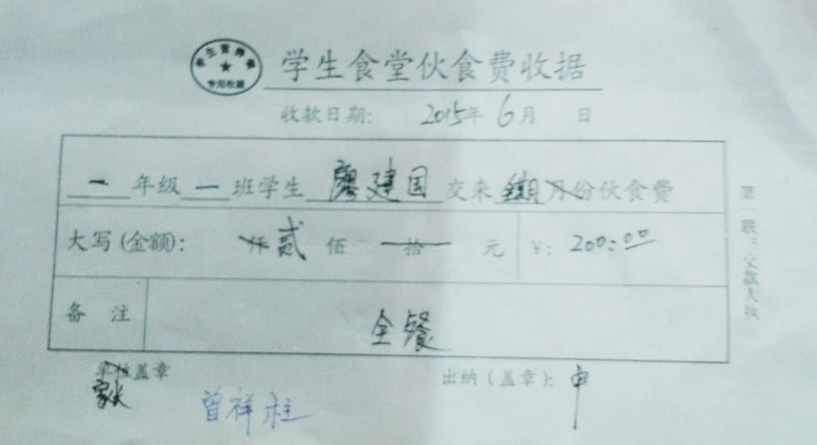 学生营养餐
专用收据
学生食堂伙食费收据
收款日期: 2015年6月 日
一年级一班学生廖建国交来月份伙食费
大写(金额): 仟贰佰拾元 ¥: 200:00
备 注 全餐
单位盖章 出纳(盖章): 申
家长 曾祥柱
第一联:交款人执